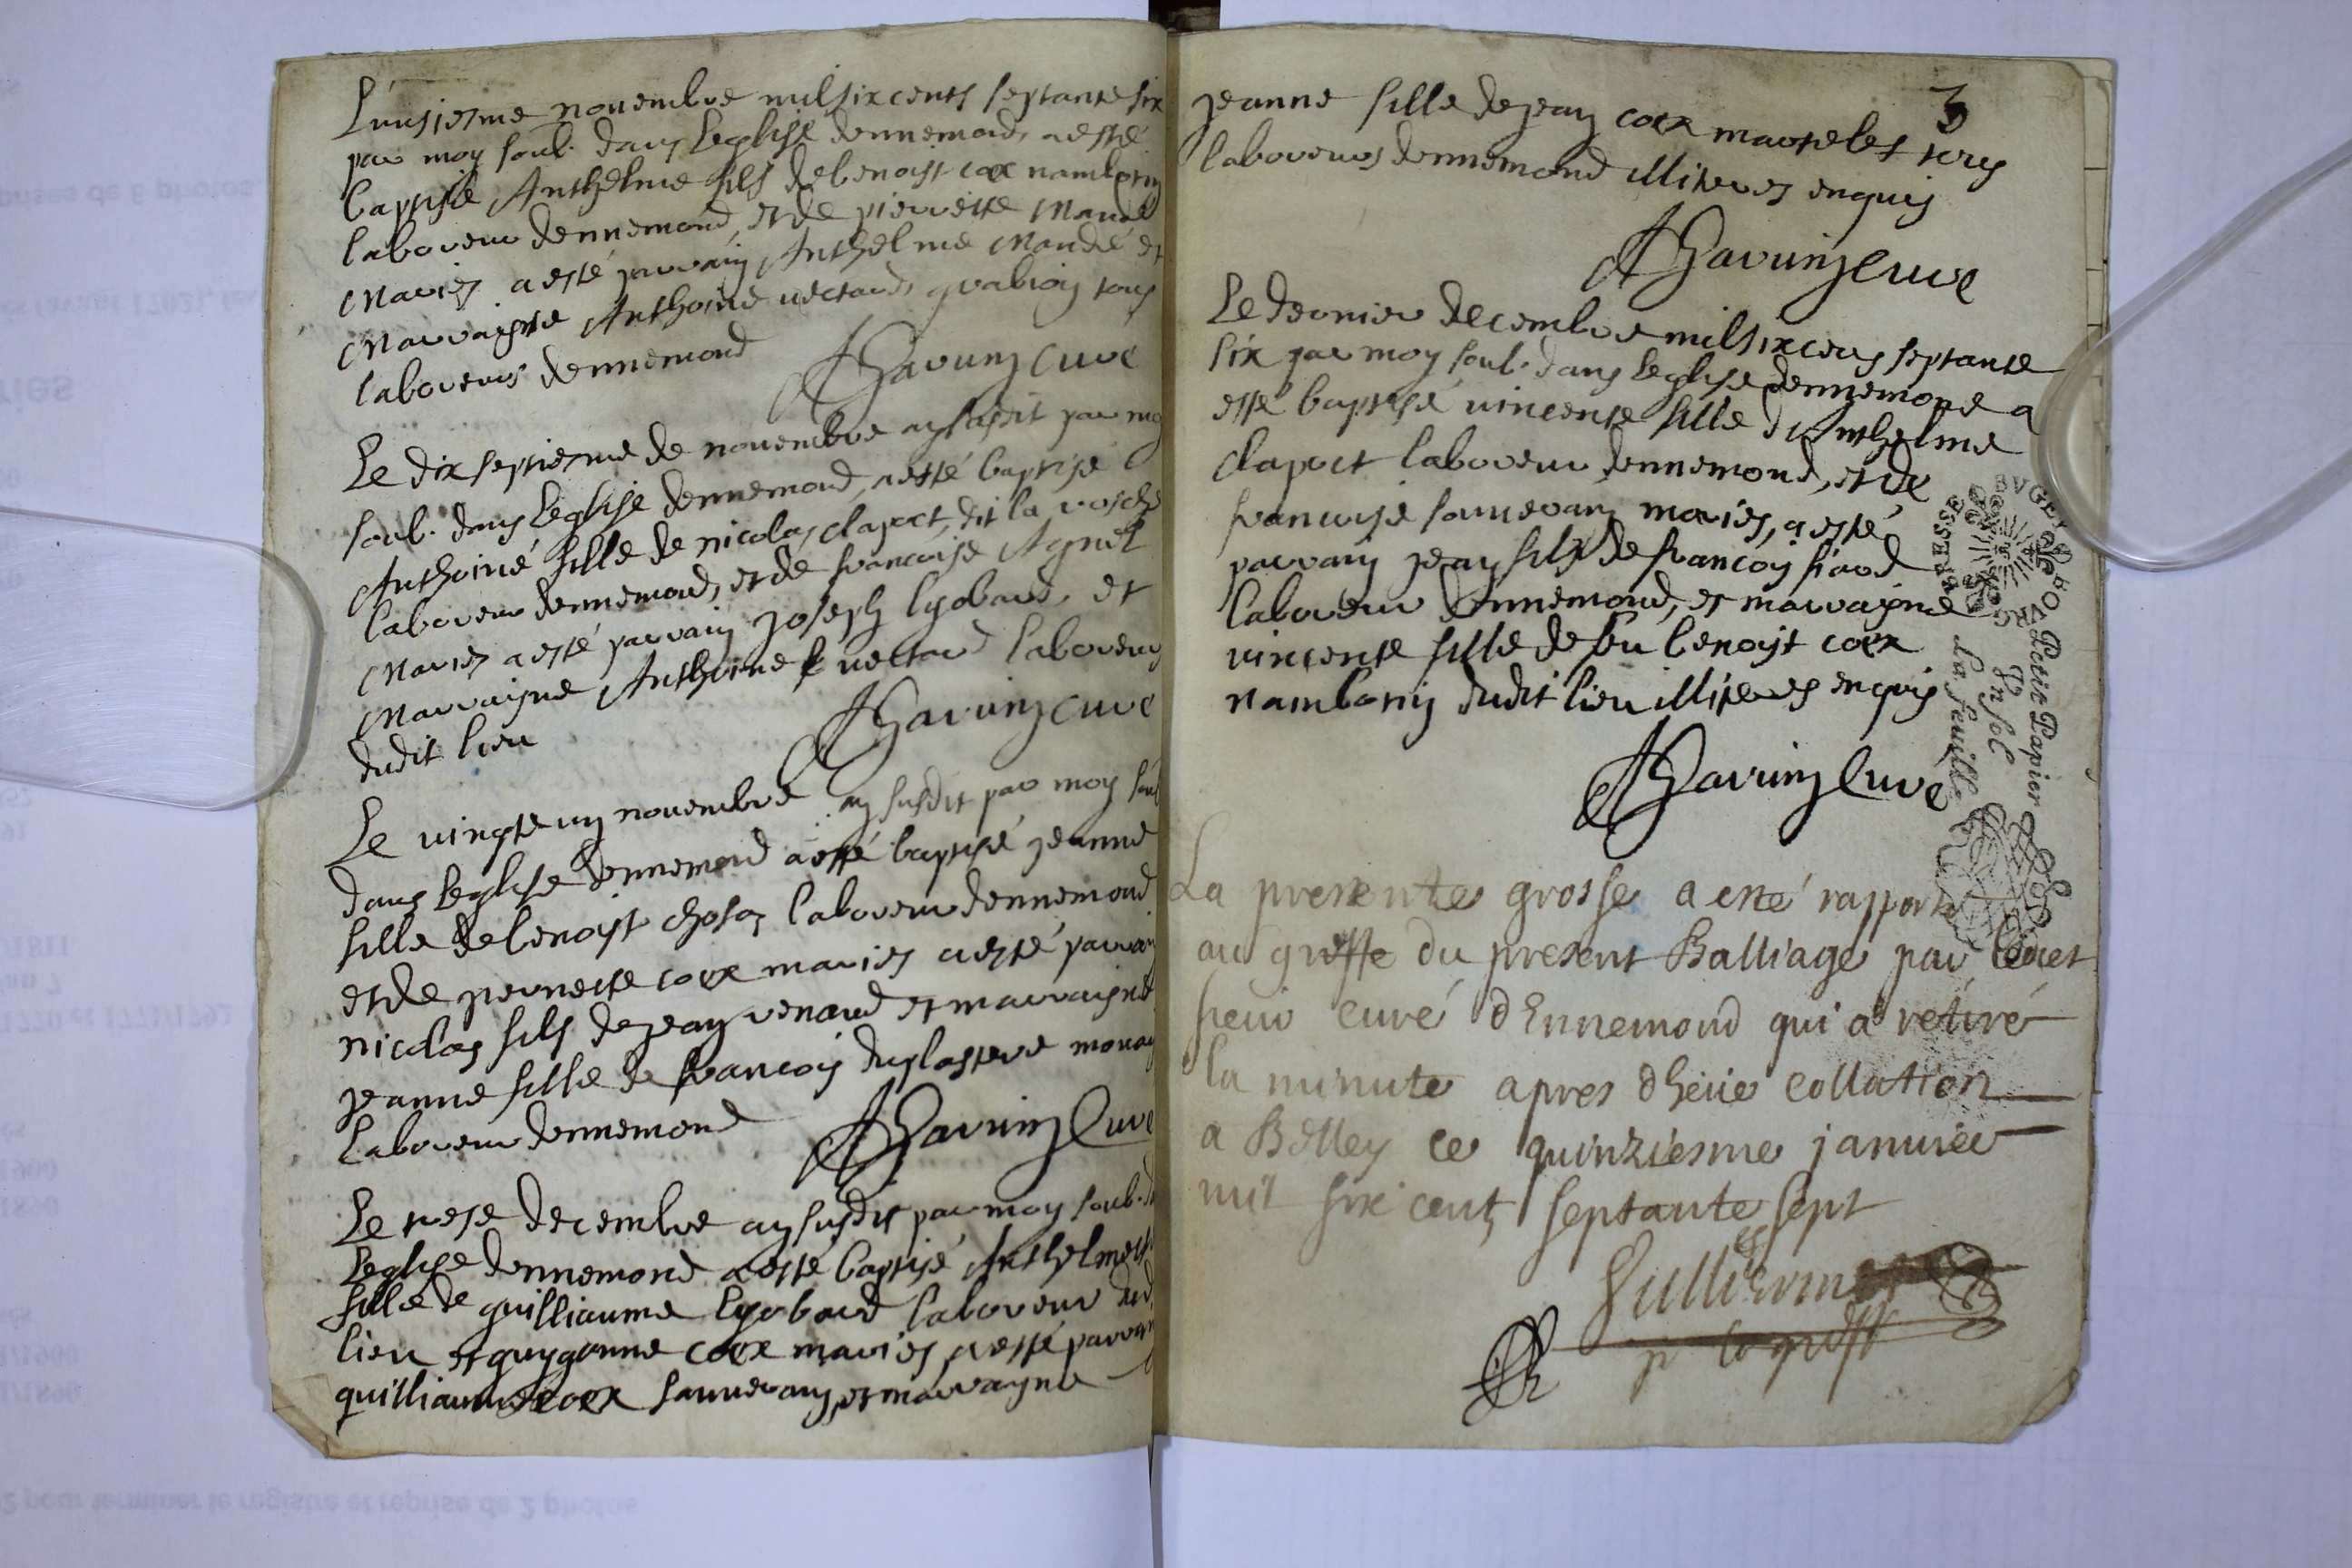 L'unsiesme novembre mil sixcents septante six
par moy soub. dans l'eglise dennemond, a esté
baptisé Anthelme fils de benoist coex namborin
laboureur dennemond, et de pierrette Mandé
Mariez a esté parrain Anthelme Mandé et
Marraigne Anthoine nectoud, tous
laboureurs dennemond
Savarin Curé
Le dixseptiesme de novembre an susdit par moy
soub. dans l'eglise dennemond, a esté baptisé
Anthoine fille de nicolas clapoct, dit la
laboureur dennemond, et de francoise Agnel
Mariez a esté parrain Joseph lyobard, et
Marraigne Anthoine nectoud laboureurs
dudit lieu
Savarin Curé
Le vingte un novembre an susdit par moy soub
dans l'eglise dennemond a esté baptisé Jeanne
fille de benoist laboureur dennemond
et de pernette coex mariez a esté parrain
nicolas fils de Jean renaud et marraigne
Jeanne fille de francois duplastre
laboureur dennemond
Savarin Curé
Le trese decembre an susdit par moy soub. d
l'eglise dennemond a esté baptisé Anthelmette
fille de guilliaume lyobard laboureur dud.
lieu et guygonne coex mariez a esté parrain
guilliaume coex sauneran, et marraigne
3
Jeanne fille de Jean coex martelet tous
laboureurs dennemond illiteres enquis
Savarin Curé
Le dernier decembre mil sixcens septante
six par moy soub. dans l'eglise dennemond a
esté baptisé vincente fille d'Anthelme
clapoct laboureur dennemond, et de
francoise sauneran mariez, a esté
parrain Jean fils de francois
laboureur dennemond, et marraigne
vincente fille de feu benoist coex
namborin dudit lieu illiteres enquis
Savarin Curé
BRESSE BUGEY
Petit Papier
Un sol
La feuille
La presente grosse a esté rapporté
au greffe du present Balliage par le
sieur curé d'Ennemond qui a retiré
la minute apres dheüe collation
a Belley ce quinziesme janvier
mil six cents septante sept
Gulliermet
p le greffe